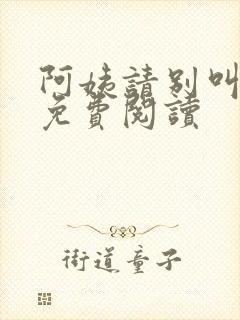 阿姨請別叫
免費閱讀
街道童子